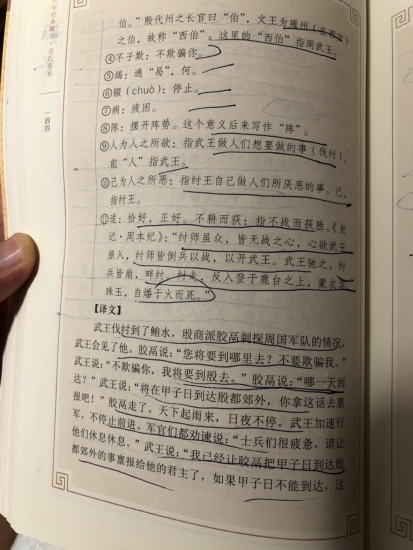 伯。”殷代州之长官曰“伯”，文王为雍州（在西方）
之伯，故称“西伯”。这里的“西伯”指周武王。
④不子欺：不欺骗你。
⑤朅：通“曷”，何。
⑥辍（chuò）：停止。
⑦病：疲困。
⑧陈：摆开阵势。这个意义后来写作“阵”。
⑨人为人之所欲：指武王做人们想要做的事（伐纣）。
前“人”指武王。
⑩己为人之所恶：指纣王自己做人们所厌恶的事。己，
指纣王。
⑪适：恰好，正好。不耕而获：指不战而获胜。《史
记·周本纪》：“纣师虽众，皆无战之心，心欲武王
亟入，纣师皆倒兵以战，以开武王。武王驰之，纣
兵皆崩，畔纣。纣走，反入登于鹿台之上，蒙衣其
珠玉，自燔于火而死。”
【译文】
武王伐纣到了鲔水，殷商派胶鬲刺探周国军队的情况，
武王会见了他。胶鬲说：“您将要到哪里去？不要欺骗我。”
武王说：“不欺骗你，我将要到殷去。”胶鬲说：“哪一天到
达？”武王说：“将在甲子日到达殷都郊外，你拿这话去禀
报吧！”胶鬲走了。天下起雨来，日夜不停。武王加速行
军，不停止前进。军官们都劝谏说：“士兵们很疲惫，请让
他们休息休息。”武王说：“我已经让胶鬲把甲子日到达殷
都郊外的事禀报给他的君主了，如果甲子日不能到达，这
·吕氏春秋
一四四